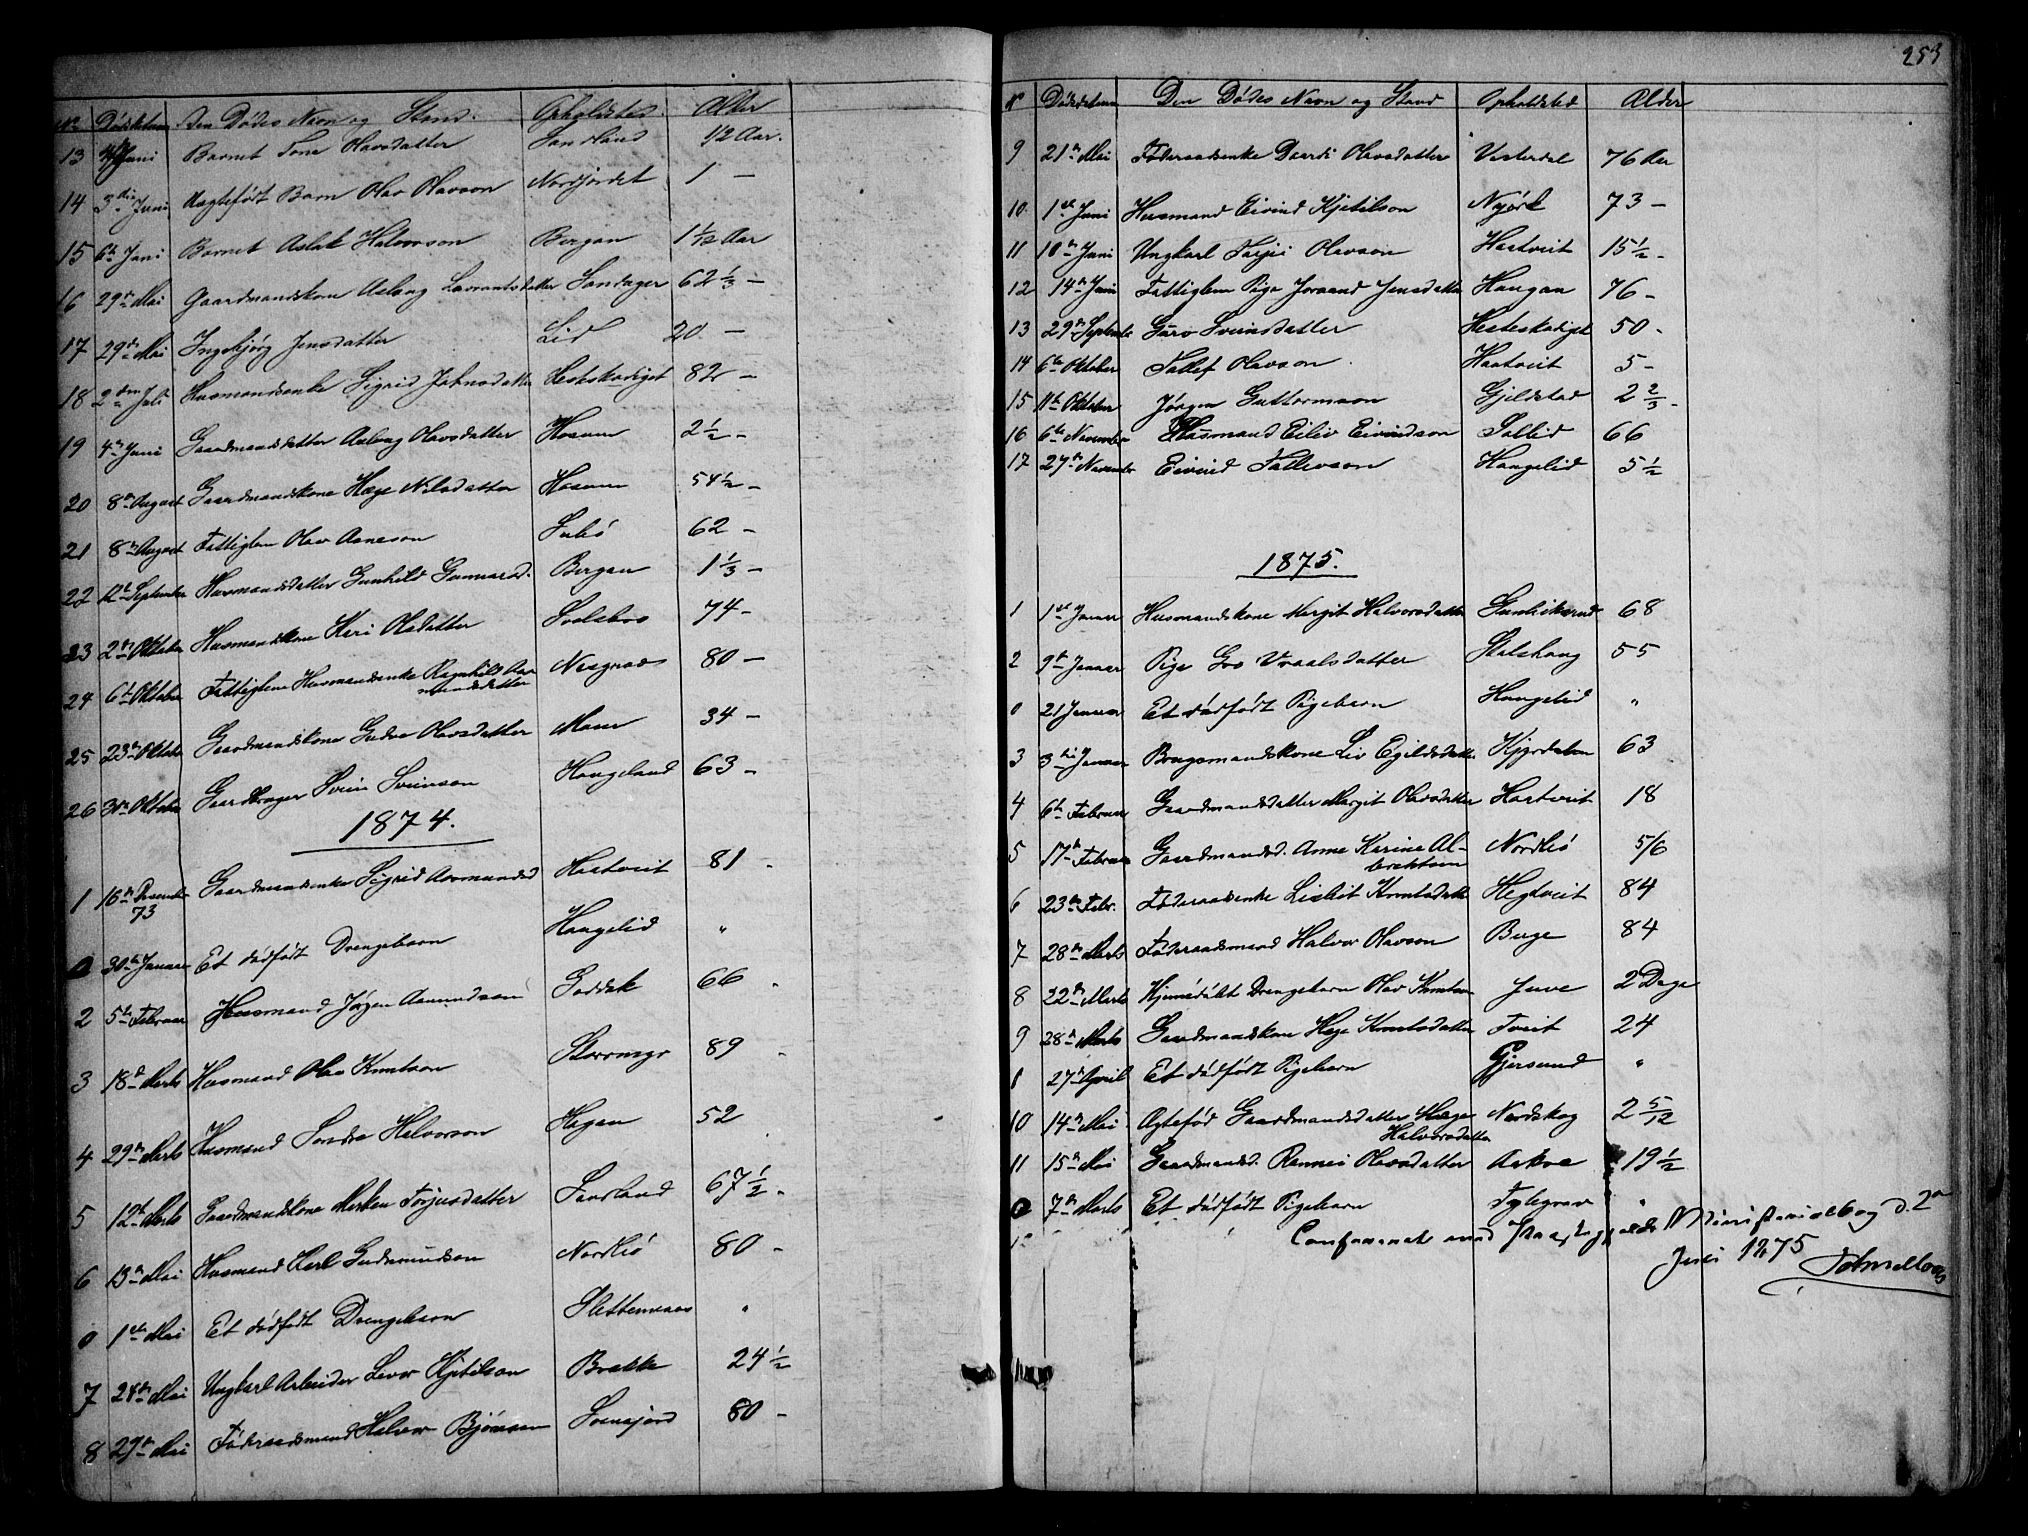 No Dødsdatum Den Dødes Navn og Stand. Opholdsted. Alder
13 Juni Barnet Tone Olavsdatter Sandland 1/2 Aar.
14 3die Juni Uægtefødt Barn Olav Olavson Nordjordet 1 —
15 6te Juni Barnet Aslak Halvorson Bergan 1 1/12 Aar
16 29de Mai Gaardmandskone Aslaug Lavrantsdatter Sandager 62 1/3 —
17 29de Mai Ingebjørg Jensdatter Lid 20 —
18 2den Juli Husmandsenke Sigrid Johnsdatter Hesteskodiget 82 —
19 4de Juni Gaardmandsdatter Aslaug Olavsdatter Hosum 2 1/2 —
20 8de August Gaardmandskone Hæge Nilsdatter Hosum 54 1/2 —
21 8de August Fattiglem Olav Aaneson Subø 62 —
22 12te September Husmandsdatter Gunhild Gunnarsd. Bergan 1 1/3 —
23 2den Oktober Husmandskone Kari Olsdatter 74 —
24 6te Oktober Fattiglem Husmandsenke Ragnhild Aa-
mundsdatter Næsgrav 80 —
25 23de Oktober Gaardmandskone Gudve Olavsdatter Moen 34 —
26 31te Oktober Gaardbruger Svein Sveinson Haugeland 63 —
1874.
1 16de December 73 Gaardmandsenke Sigrid Aasmundsd Hastveit 81 -
0 30te Januar Et dødfødt Drengebarn Haugelid "
2 5te Februar Husmand Jørgen Aamundson Goddek 66 -
3 18de Marts Husmand Olav Knutson Storemyr 89 -
4 29de Marts Husmand Sondre Halvorson Hagen 52
5 12te Marts Gaardmandskone Margen Torjusdatter Sandland 67 1/2 -
6 13de Mai Husmand Karl Gudmundson Nordbø 80 -
0 1ste Mai Et dødfødt Drengebarn Slettemoen "
7 24de Mai Ungkarl Arbeider Levor Kjetilson Brække 24 1/2
8 29de Mai Føderaadsmand Halvor Bjørnson 80 -
253
No Dødsdatum Den Dødes Navn og Stand Opholdsted Alder
9 21de Mai Føderaadsenke Daardi Olavsdatter Vesterdal 76 Aar
10 1ste Juni Husmand Eivind Kjetilson Nyørk 73 —
11 10de Juni Ungkarl Tarjei Olavson Hastveit 15 1/2 -
12 14de Juni Fattiglem Pige Joraand Jensdatter Haugan 76 -
13 29de September Guro Sveinsdatter Hesteskodiget 50 -
14 6te Oktober Tallef Olavson Hastveit 5 -
15 11te Oktober Jørgen Guttormson Gjeldstad 2 2/3 -
16 6te November Husmand Eiliv Eivindson Sollid 66
17 27de November Eivind Tallevson Haugelid 5 1/2
1875.
1 1ste Januar Husmandskone Margit Halvorsdatter 68
2 9de Januar Pige Gro Vraalsdatter Stalshaug 55
0 21 Januar Et dødfødt Pigebarn Haugelid "
3 3die Januar Brugsmandskone Liv Egildsdatter Kjyrdalen 63
4 6te Februar Gaardmandsdatter Margit Olavsdatter Hastveit 18
5 17de Februar Gaardmandsd. Anne Karine Al-
brektsen Nordbø 5/6
6 23de Febr. Føderaadsenke Lisbet Knutsdatter Hegtveit 84
7 28de Marts Føderaadsmand Halvor Olavson Berge 84
8 22de Marts Hjemmedøbt Drengebarn Olav Knutson Juve 2 Dage
9 28de Marts Gaardmandskone Hæge Knutsdatter Tveit 24
1 27de April Et dødfødt Pigebarn Gjersund "
10 14de Mai Ægtefød Gaardmandsdatter Hæge
Halvorsdatter Nordskog 2 5/12
11 15de Mai Gaardmandsd. Rannei Olavsdatter Askoe 19 1/2
0 7de Marts Et dødfødt Pigebarn "
Confereret med Præstegjeldets Ministerialbog d. 2n
Juli 1875